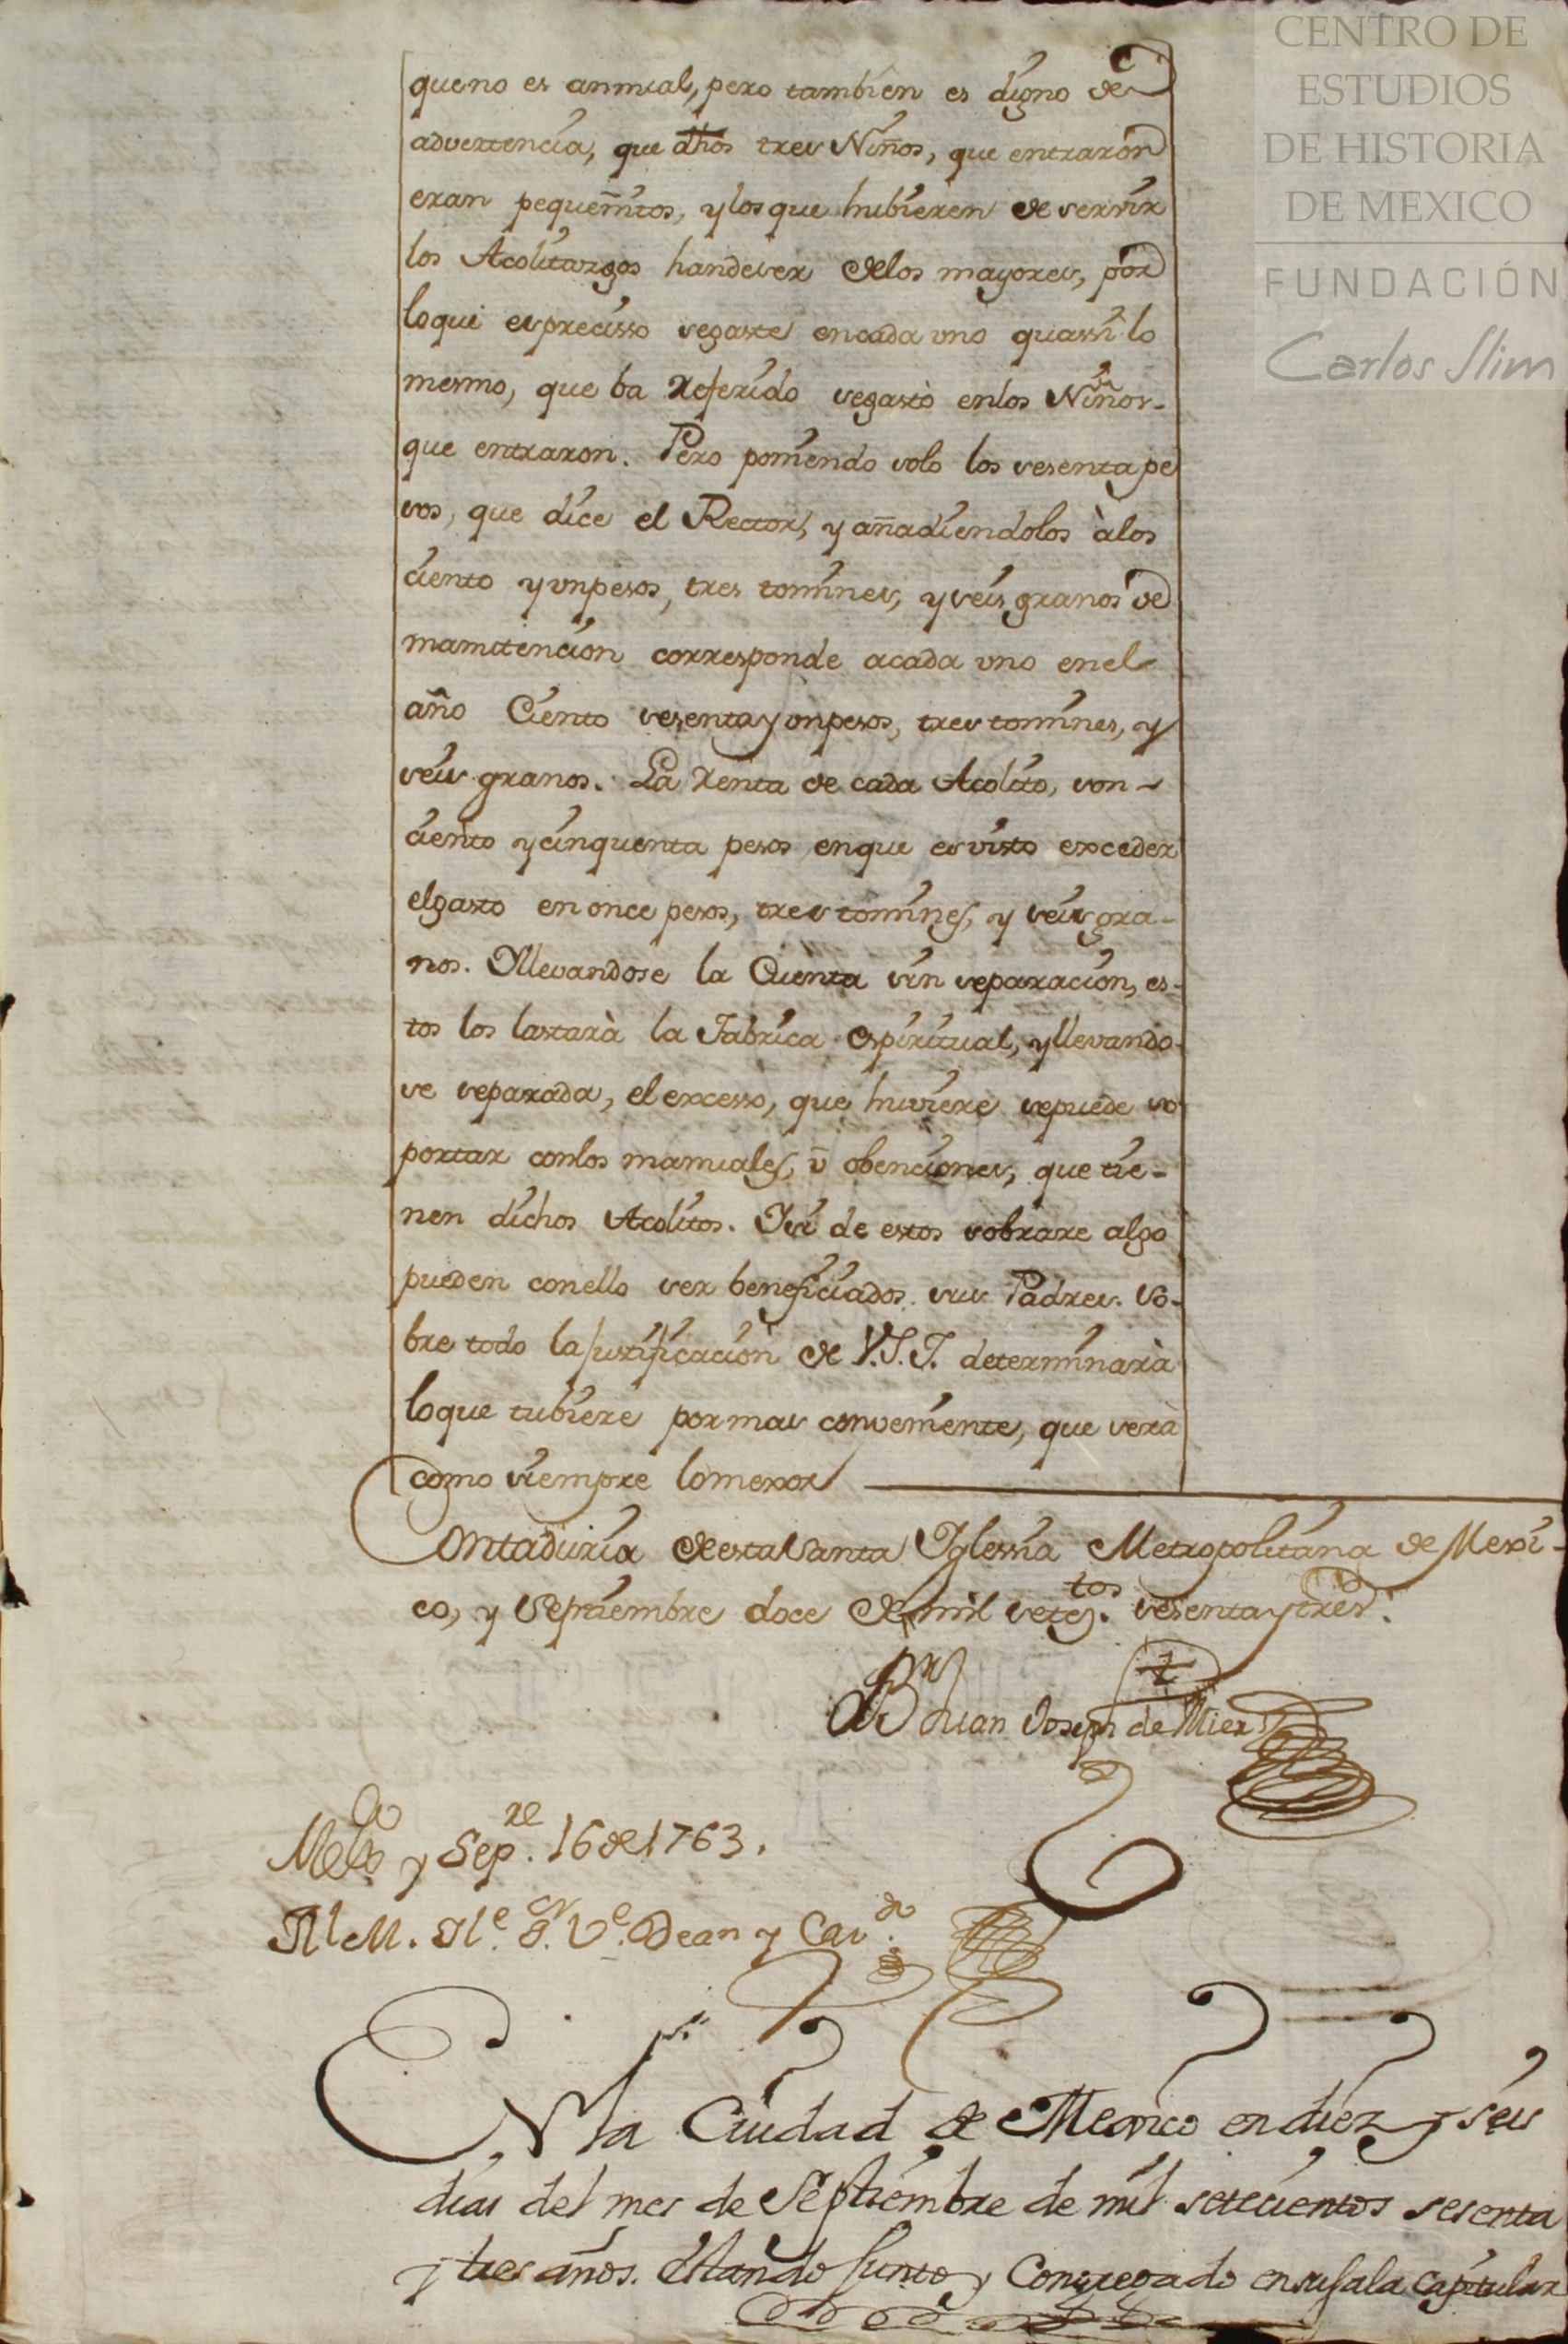 CENTRO DE
ESTUDIOS
DE HISTORIA
DE MEXICO
FUNDACIÓN
Carlos Slim
que no es annual, pero tambien es digno de
advertencia, que dhos tres Niños, que entraron
eran pequeñitos, y los que hubieren de servir
los Acolitazgos han de ser de los mayores, por
lo que es precisso segaste en cada uno quassi lo
mesmo, que ba referido segastò en los Niños
que entraron. Pero poniendo solo los sesenta pe
sos, que dice el Rector, y añadiendolos à los
ciento y un pesos, tres tomines, y seis granos de
manutencion corresponde a cada uno en el
año Ciento sesenta y un pesos, tres tomines, y
seis granos. La Renta de cada Acolito, son
ciento y cinquenta pesos en que es visto exceder
el gasto en once pesos, tres tomines, y seis gra-
nos. Yllevandose la Cuenta sin separacion, es-
tos los lastarà la Fabrica espiritual, y llevando-
se separada, el excesso, que huviere sepuede so
portar con los manuales, ù obenciones, que tie-
nen dichos Acolitos. Y si de estos sobrare algo
pueden con ello ser beneficiados sus Padres. So-
bre todo la justificacion de V.S.I. determinarà
lo que tubiere por mas conveniente, que serà
como siempre lo mexor
Contaduria de esta Santa Iglessia Metropolitana de Mexi-
co, y Septiembre doce de mil setec.tos sesenta y tres.
Br Juan Joseph de Mier
y Sep.re 16 de 1763.
Sr. Ve. Dean y Cav.do
En la Ciudad de Mexico en diez y seis
dias del mes de Septiembre de mil setecientos sesenta
y tres años. Estando junto y Congregado en su sala capitular